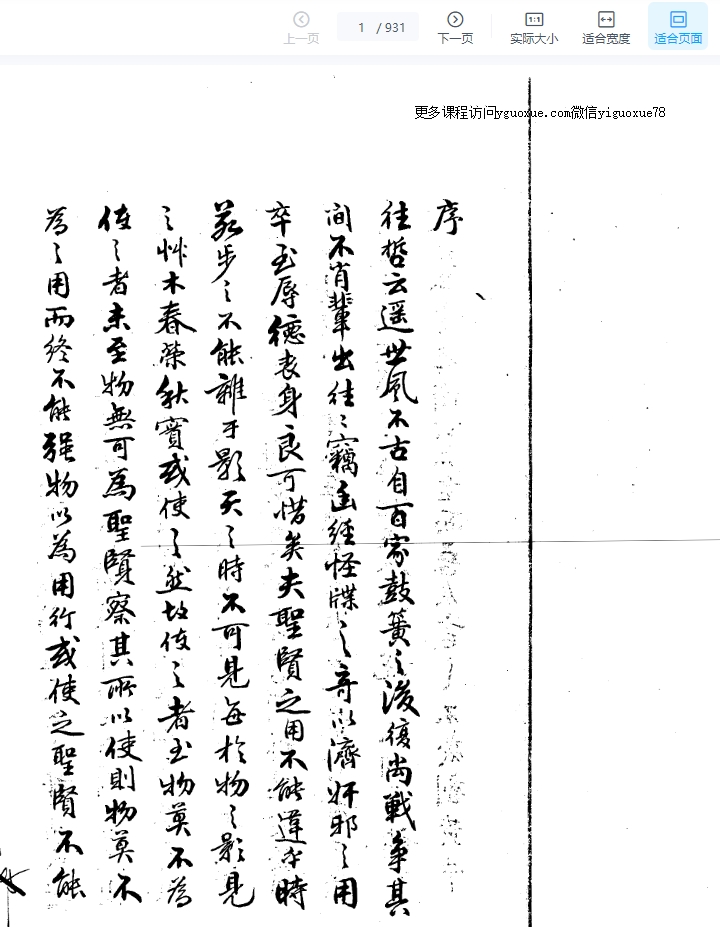 上一页
1 / 931
下一页
实际大小
适合宽度
适合页面
更多课程访问yguoxue.com微信yiguoxue78
序
往哲云遥世风不古自百家鼓簧之後復尚戰爭其
间不肖輩出往〻竊幽經怪牒之奇以濟奸邪之用
卒至辱德喪身良可惜矣夫聖賢之用不能違乎時
若步之不能離于影天之時不可見每於物之影見
之艸木春荣秋實或使之然故使之者至物莫不為
使之者未至物無可為聖賢察其所以使則物莫不
為之用而终不能强物以為用行或使之聖賢不能